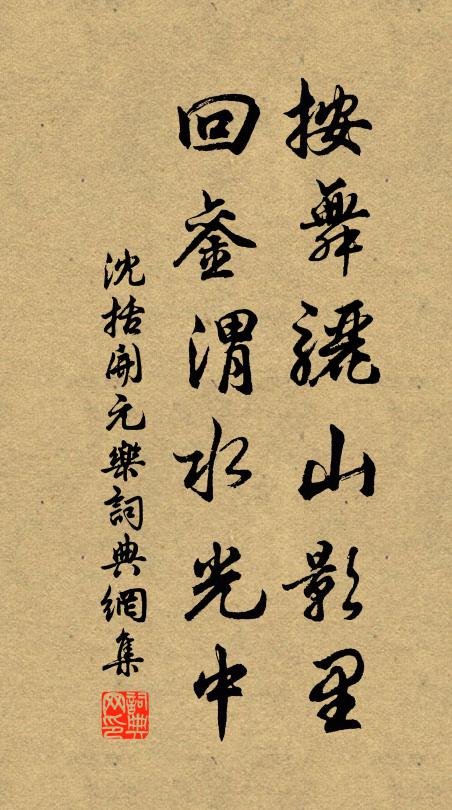 按舞驪山影里
回銮渭水光中
沈括開元樂詞典網集
詞典网印